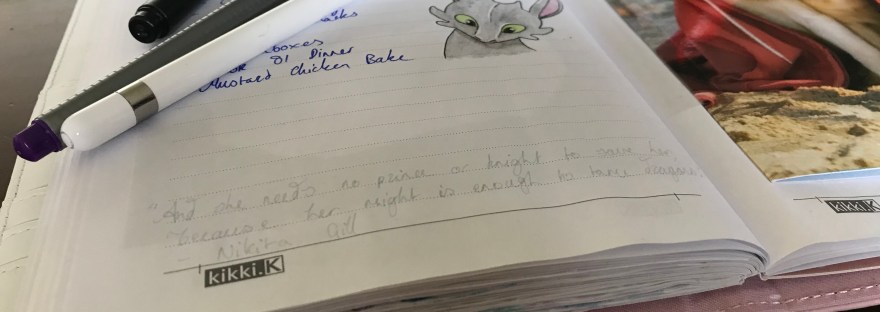 boxes
Dinner
Mustard Chicken Bake
"And she needs no prince or knight to save her,
because her might is enough to tame dragons."
- Nikita Gill
kikki.K
kikki.K